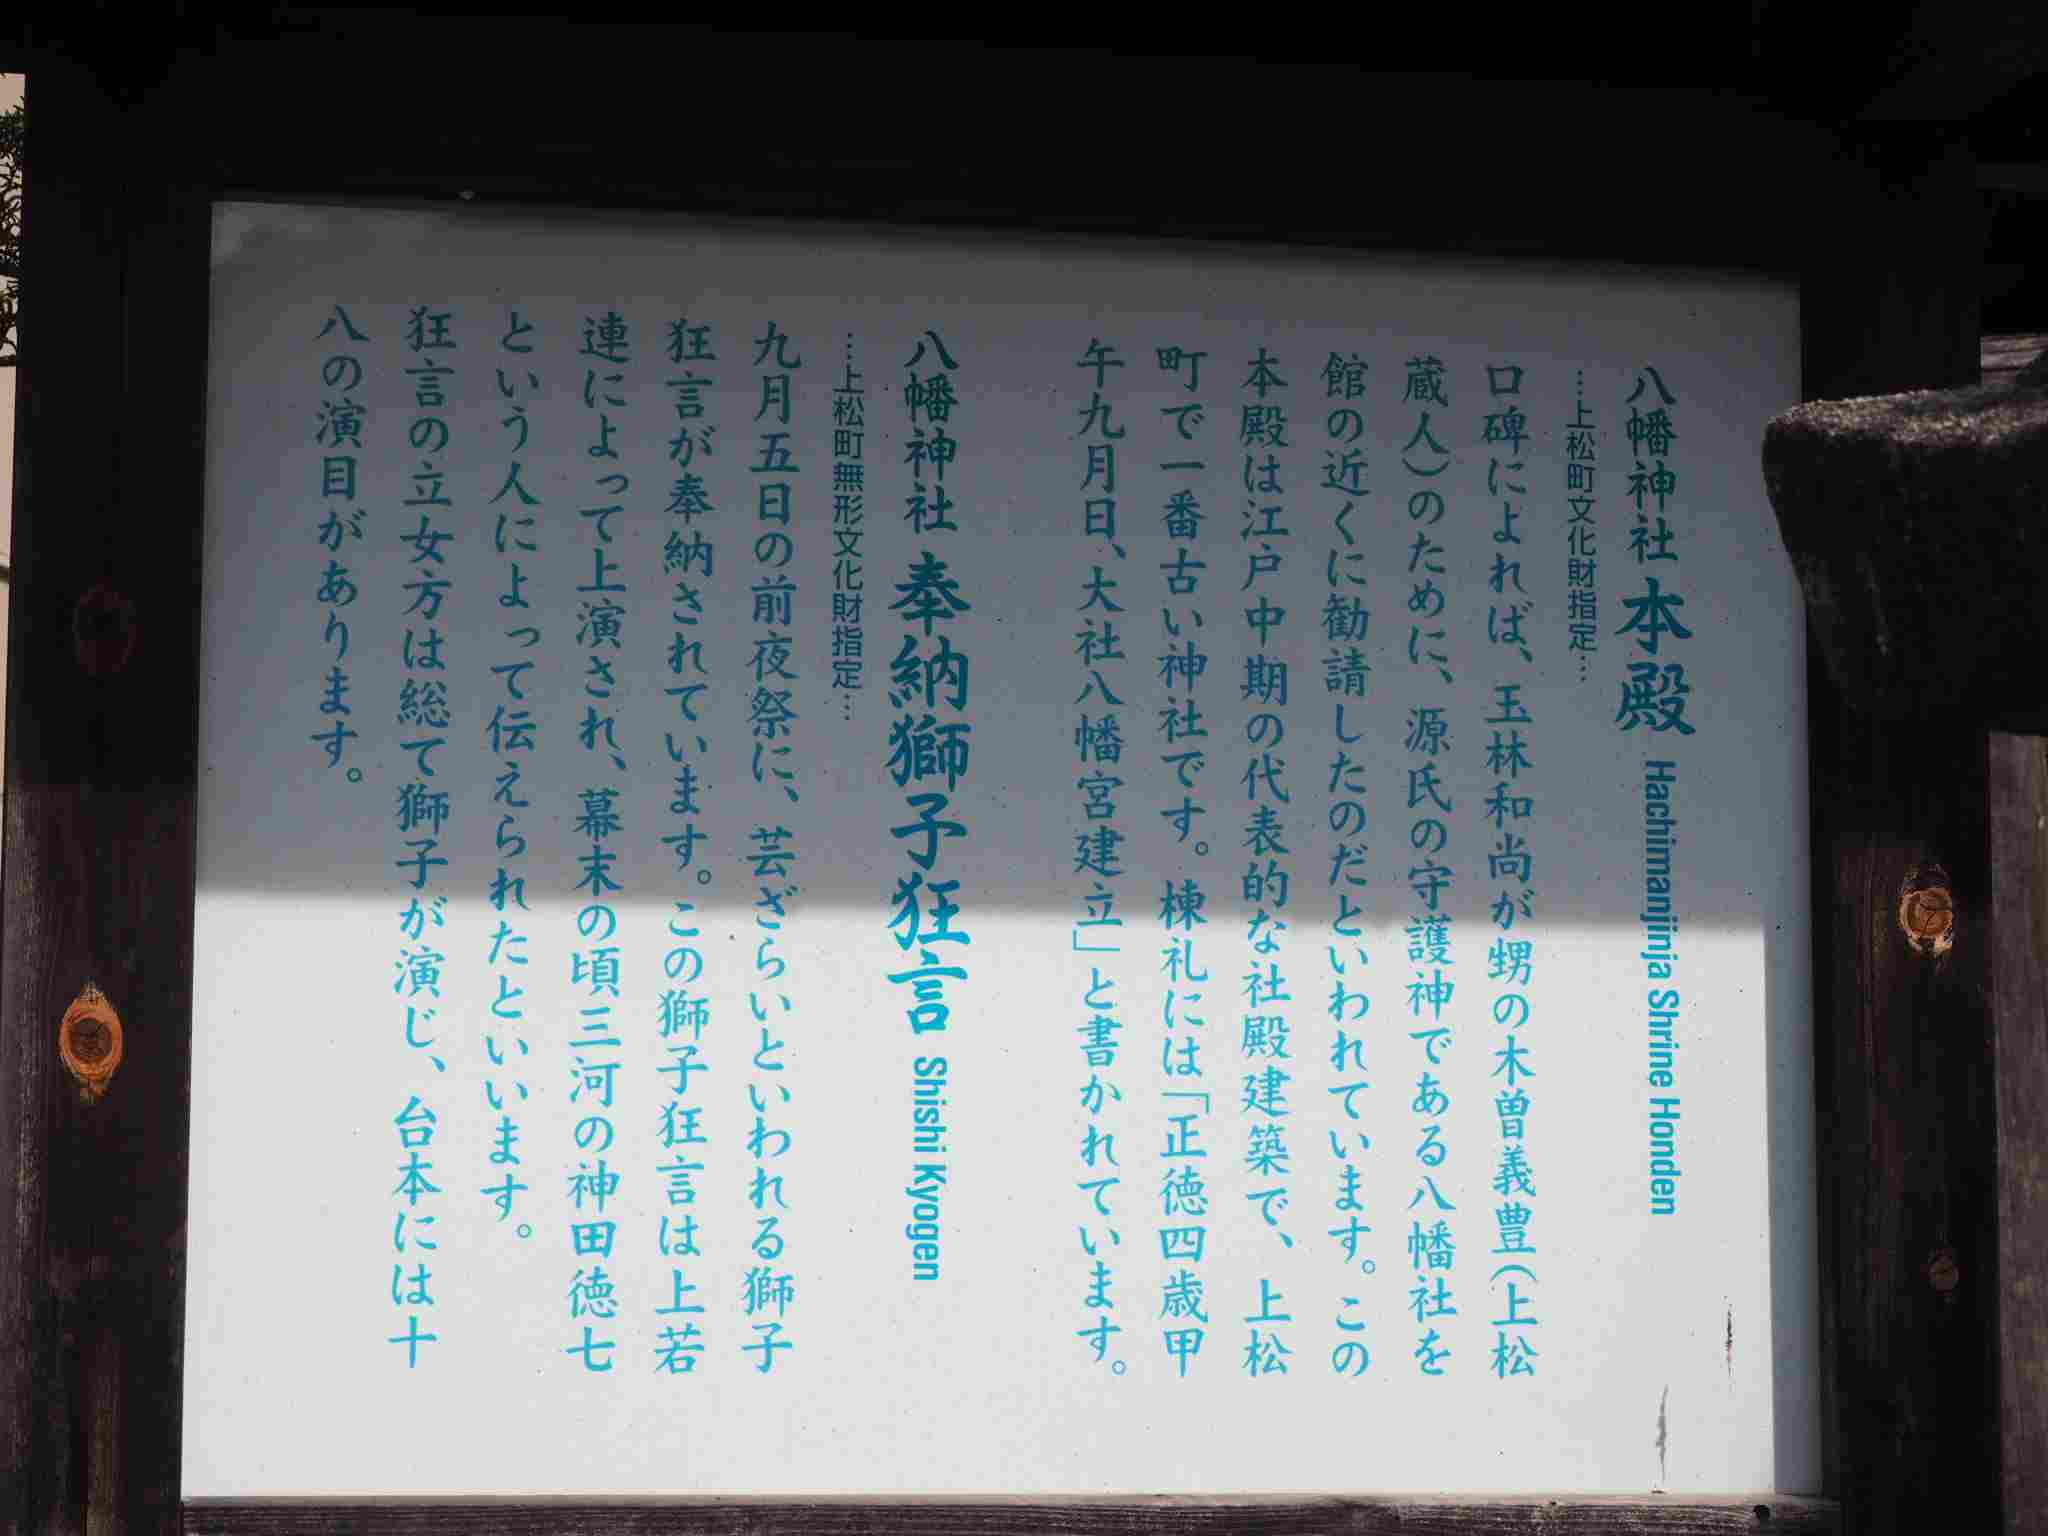 八幡神社 本殿 Hachimanjinja Shrine Honden
…上松町文化財指定…
口碑によれば、玉林和尚が甥の木曽義豊(上松
蔵人)のために、源氏の守護神である八幡社を
館の近くに勧請したのだといわれています。この
本殿は江戸中期の代表的な社殿建築で、上松
町で一番古い神社です。棟礼には「正徳四歳甲
午九月日、大社八幡宮建立」と書かれています。
八幡神社 奉納獅子狂言 Shishi Kyogen
…上松町無形文化財指定…
九月五日の前夜祭に、芸ざらいといわれる獅子
狂言が奉納されています。この獅子狂言は上若
連によって上演され、幕末の頃三河の神田徳七
という人によって伝えられたといいます。
狂言の立女方は総て獅子が演じ、台本には十
八の演目があります。